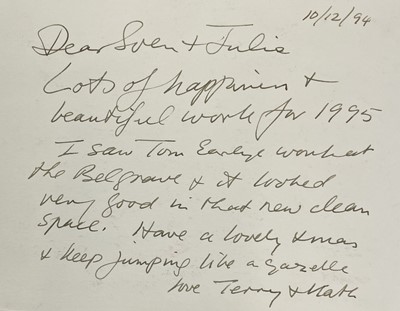 10/12/94
Dear Sven + Julie
Lots of happiness +
beautiful work for 1995
I saw Tom Early's work at
the Belgrave + it looked
very good in that new clean
space. Have a lovely xmas
+ keep jumping like a gazelle
love Terry + Kath